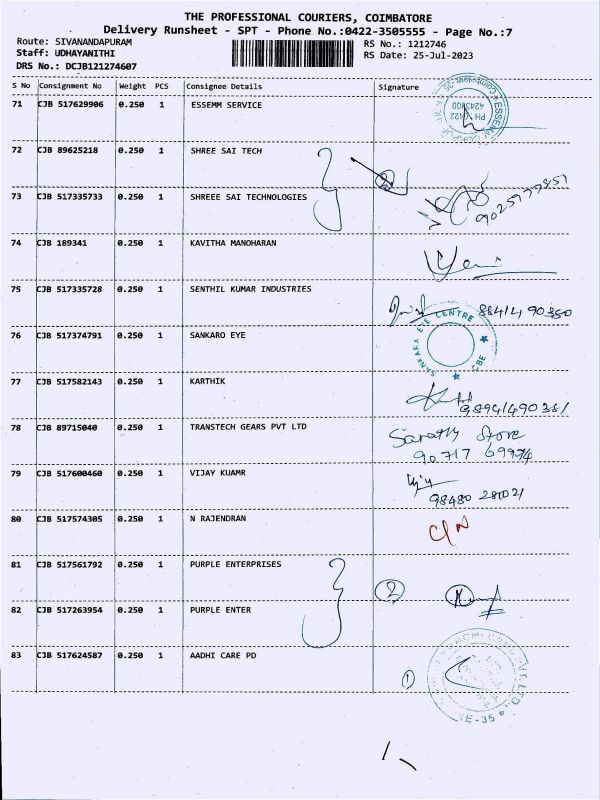 THE PROFESSIONAL COURIERS, COIMBATORE
Delivery Runsheet - SPT - Phone No.:0422-3505555 - Page No.:7
Route: SIVANANDAPURAM RS No.: 1212746
Staff: UDHAYANITHI RS Date: 25-Jul-2023
DRS No.: DCJB121274607
S No Consignment No Weight PCS Consignee Details Signature
71 CJB 517629906 0.250 1 ESSEMM SERVICE
72 CJB 89625218 0.250 1 SHREE SAI TECH
73 CJB 517335733 0.250 1 SHREEE SAI TECHNOLOGIES
74 CJB 189341 0.250 1 KAVITHA MANOHARAN
75 CJB 517335728 0.250 1 SENTHIL KUMAR INDUSTRIES
76 CJB 517374791 0.250 1 SANKARO EYE SANKARA EYE CENTRE CBE
77 CJB 517582143 0.250 1 KARTHIK
78 CJB 89715040 0.250 1 TRANSTECH GEARS PVT LTD Sarathy Store
79 CJB 517600460 0.250 1 VIJAY KUAMR
80 CJB 517574305 0.250 1 N RAJENDRAN
81 CJB 517561792 0.250 1 PURPLE ENTERPRISES 2
82 CJB 517263954 0.250 1 PURPLE ENTER
83 CJB 517624587 0.250 1 AADHI CARE PD 1